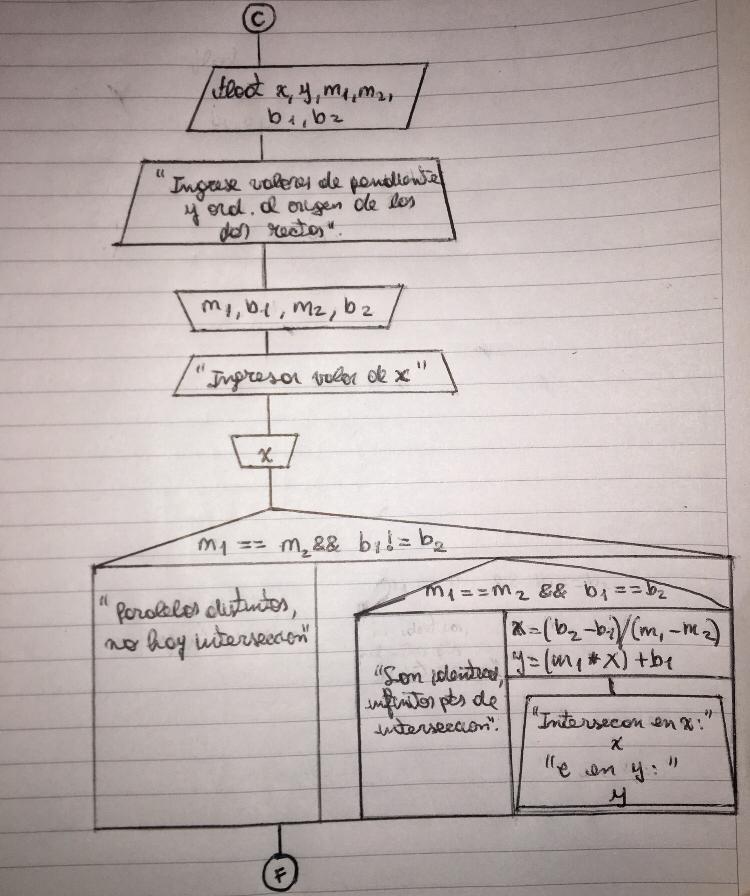 C
float x, y, m1, m2,
b1, b2
"Ingrese valores de pendiente
y ord. al origen de las
dos rectas".
m1, b1, m2, b2
"Ingresar valor de x"
x
m1 == m2 && b1 != b2
"Paralelas distintas,
no hay interseccion"
m1 == m2 && b1 == b2
"Son identicas,
infinitos pts de
interseccion".
x = (b2 - b1)/(m1 - m2)
y = (m1 * x) + b1
"Interseccon en x:"
x
"e en y: "
y
F